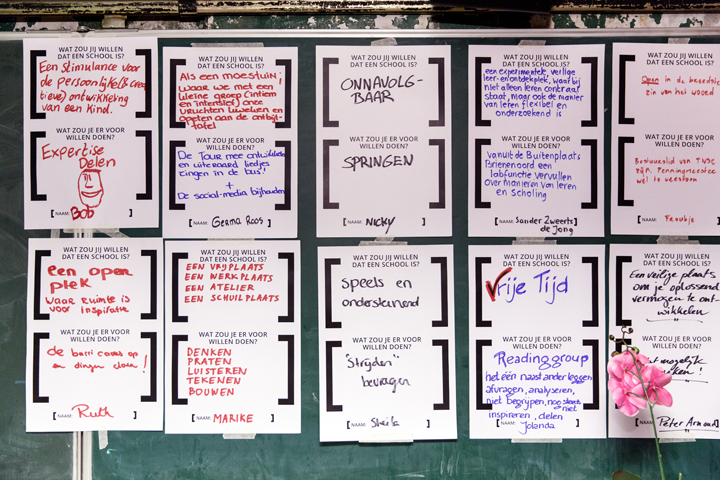 WAT ZOU JIJ WILLEN
DAT EEN SCHOOL IS?
Een Stimulance voor
de persoonlijke(&crea
tieve) ontwikkeling
van een kind.
WAT ZOU JE ER VOOR
WILLEN DOEN?
Expertise
Delen
NAAM: Bob
WAT ZOU JIJ WILLEN
DAT EEN SCHOOL IS?
Als een moestuin;
waar we met een
kleine groep (intiem
en intensief) onze
vruchten kweken en
opeten aan de ontbijt-
tafel
WAT ZOU JE ER VOOR
WILLEN DOEN?
De Tour mee ontwikkelen
en uiteraard liedjes
zingen in de bus!
+
De social-media bijhouden
NAAM: Germa Roos
WAT ZOU JIJ WILLEN
DAT EEN SCHOOL IS?
ONNAVOLG-
BAAR
WAT ZOU JE ER VOOR
WILLEN DOEN?
SPRINGEN
NAAM: NICKY
WAT ZOU JIJ WILLEN
DAT EEN SCHOOL IS?
een experimentele, veilige
leer- en ontdekplek, waar bij
niet alleen leren centraal
staat, maar ook de manier
van leren flexibel en
onderzoekend is
WAT ZOU JE ER VOOR
WILLEN DOEN?
Vanuit de Buitenplaats
Brienenoord een
labfunctie vervullen
over manieren van leren
en scholing
NAAM: Sander Zweerts
de Jong
WAT ZOU JIJ WILLEN
DAT EEN SCHOOL IS?
Open in de breedste
zin van het woord
WAT ZOU JE ER VOOR
WILLEN DOEN?
Bestuurslid van
Penningmeester
wel te verstaan
NAAM: Froukje
WAT ZOU JIJ WILLEN
DAT EEN SCHOOL IS?
een open
plek
waar ruimte is
voor inspiratie
WAT ZOU JE ER VOOR
WILLEN DOEN?
de op
en dingen doen!
NAAM: Ruth
WAT ZOU JIJ WILLEN
DAT EEN SCHOOL IS?
EEN VRIJPLAATS
EEN WERKPLAATS
EEN ATELIER
EEN SCHUILPLAATS
WAT ZOU JE ER VOOR
WILLEN DOEN?
DENKEN
PRATEN
LUISTEREN
TEKENEN
BOUWEN
NAAM: MARIKE
WAT ZOU JIJ WILLEN
DAT EEN SCHOOL IS?
Speels en
ondersteunend
WAT ZOU JE ER VOOR
WILLEN DOEN?
"Strijden"
bevragen
NAAM: Sheila
WAT ZOU JIJ WILLEN
DAT EEN SCHOOL IS?
Vrije Tijd
WAT ZOU JE ER VOOR
WILLEN DOEN?
Reading group
het één naast ander leggen
afvragen, analyseren,
niet begrijpen, nog steeds niet
inspireren, delen
NAAM: Jolanda
WAT ZOU JIJ WILLEN
DAT EEN SCHOOL IS?
Een veilige plaats
om je oplossend
vermogen te ont-
wikkelen
WAT ZOU JE ER VOOR
WILLEN DOEN?
mogelijk
maken!
NAAM: Peter Arnoud